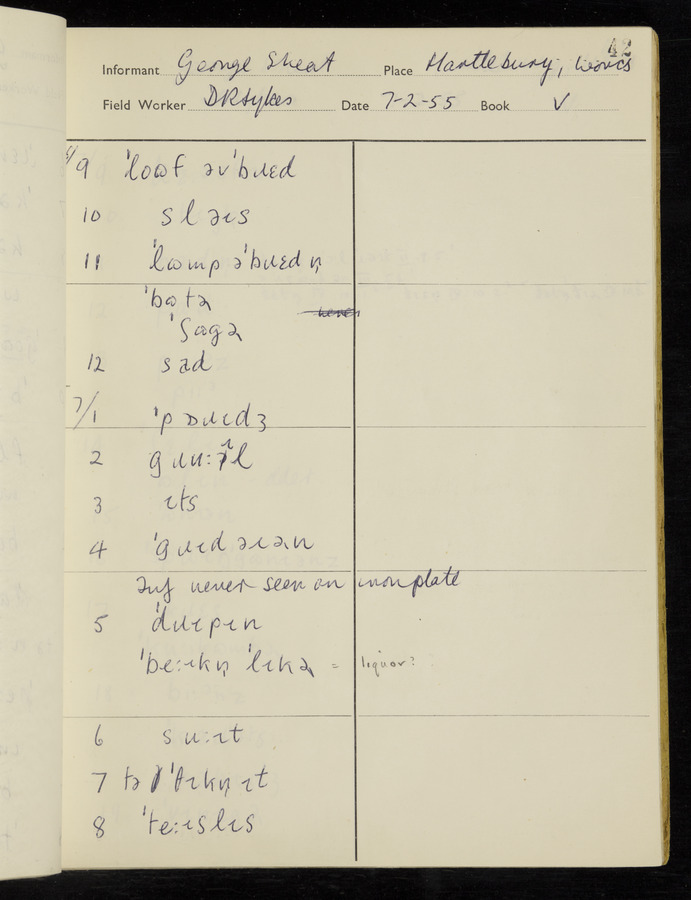 42
Informant George Sheat Place Hartlebury, Worcs
Field Worker DRSykes Date 7-2-55 Book V
6/9 ˈlɷəf əvˈbɹɛd
10 slaɪs
11 ˈlɷmp əˈbɹɛdn̩
ˈbɷtə
ˈʃɷgə
12 sad
7/1 ˈpɒɹɪdʒ
2 gɹu:
3 ɪts
4 ˈgɹɪdaɪən
Inf never seen an iron plate
5 ˈdɹɪpɪn
ˈbe:ɪkn̩ ˈlɪkə = liquor?
6 su:ɪt
7 tə ˈθɪkn̩ ɪt
8 ˈte:ɪslɪs